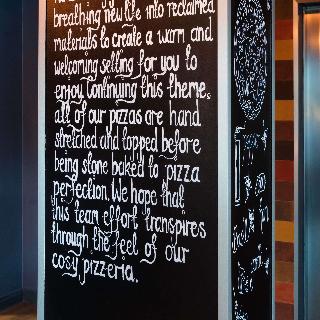 breathing new life into reclaimed
materials to create a warm and
welcoming setting for you to
enjoy. Continuing this theme,
all of our pizzas are hand
stretched and topped before
being stone baked to pizza
perfection. We hope that
this team effort transpires
through the feel of our
cosy pizzeria.